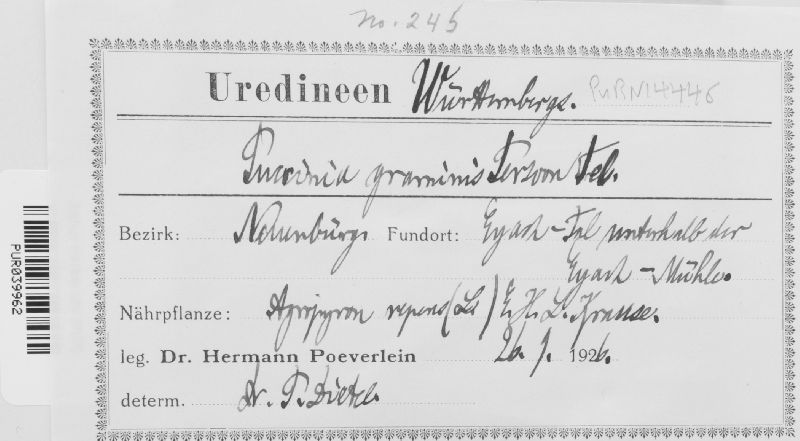 No. 245
Uredineen Württembergs.
PURN14446
Puccinia graminis Persoon Tel.
Bezirk: Neuenbürg. Fundort: Eyach-Tal unterhalb der
Eyach-Mühle.
Nährpflanze: Agropyron repens (L.) E. H. L. Krause.
leg. Dr. Hermann Poeverlein 26. 9. 1926.
determ. Dr. P. Dietel.
PUR039962